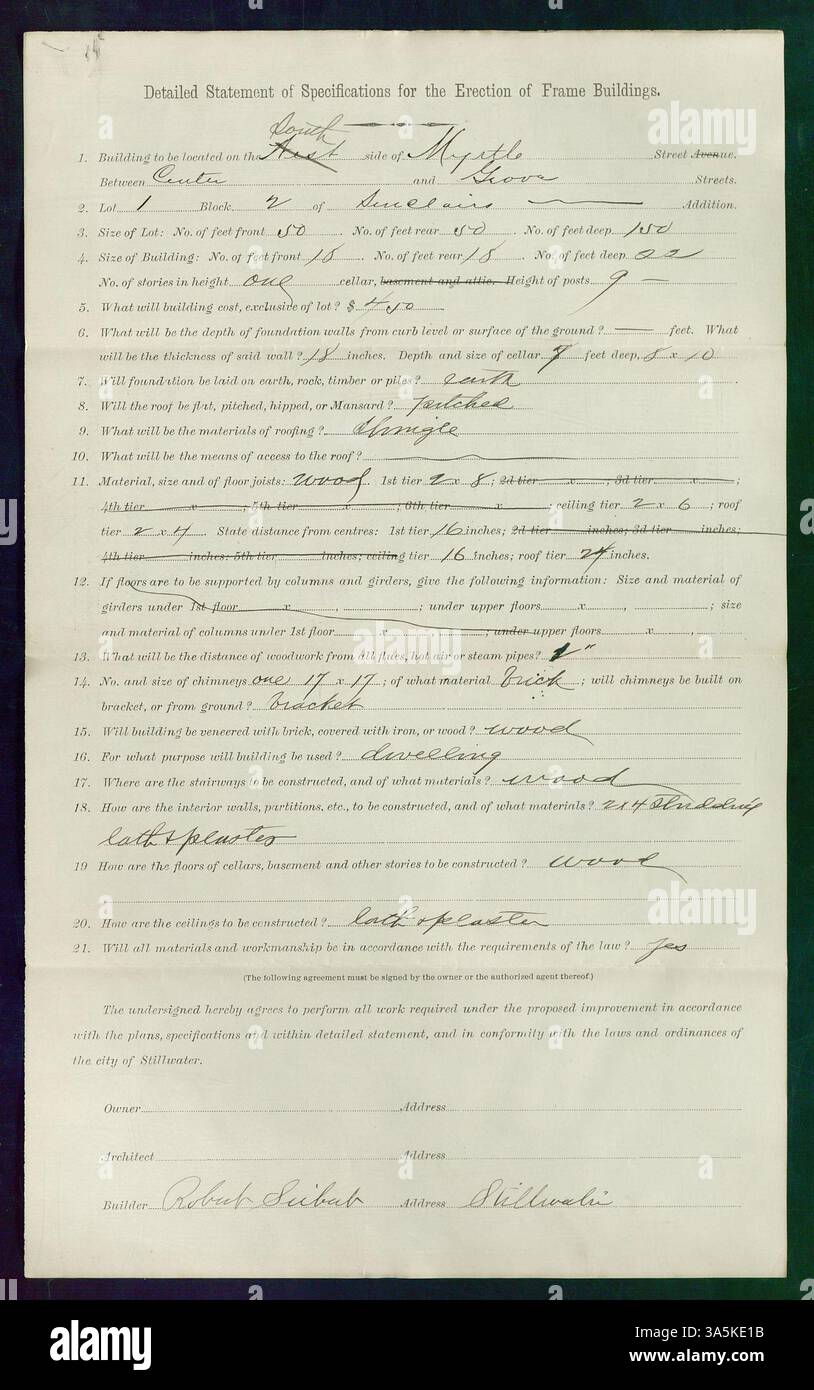 Detailed Statement of Specifications for the Erection of Frame Buildings.
South
1. Building to be located on the West side of Myrtle Street Avenue.
Between Center and Grove Streets.
2. Lot 1 Block 2 of Sinclairs Addition.
3. Size of Lot: No. of feet front 50 No. of feet rear 50. No. of feet deep 150
4. Size of Building: No. of feet front 18 No. of feet rear 18. No. of feet deep
No. of stories in height one cellar, basement and attic. Height of posts 9 —
5. What will building cost, exclusive of lot? $ 450
6. What will be the depth of foundation walls from curb level or surface of the ground? — feet. What
will be the thickness of said wall? 18 inches. Depth and size of cellar 7 feet deep, 8 x 10
7. Will foundation be laid on earth, rock, timber or piles? earth
8. Will the roof be flat, pitched, hipped, or Mansard? pitched
9. What will be the materials of roofing? Shingle
10. What will be the means of access to the roof? —
11. Material, size and of floor joists: wood 1st tier 2 x 8; 2d tier x ; 3d tier x ;
4th tier x ; 5th tier x ; 6th tier x ; ceiling tier 2 x 6; roof
tier 2 x 4 State distance from centres: 1st tier 16 inches; 2d tier inches; 3d tier inches;
4th tier inches: 5th tier inches; ceiling tier 16 inches; roof tier 24 inches.
12. If floors are to be supported by columns and girders, give the following information: Size and material of
girders under 1st floor x , ; under upper floors x , ; size
and material of columns under 1st floor x ; under upper floors x ,
13. What will be the distance of woodwork from all flues, hot air or steam pipes? 2"
14. No. and size of chimneys one 17 x 17; of what material brick; will chimneys be built on
bracket, or from ground? bracket
15. Will building be veneered with brick, covered with iron, or wood? wood
16. For what purpose will building be used? dwelling
17. Where are the stairways to be constructed, and of what materials? wood
18. How are the interior walls, partitions, etc., to be constructed, and of what materials? 2x4 studding
lath & plaster
19 How are the floors of cellars, basement and other stories to be constructed? wood
20. How are the ceilings to be constructed? lath & plaster
21. Will all materials and workmanship be in accordance with the requirements of the law? yes
(The following agreement must be signed by the owner or the authorized agent thereof.)
The undersigned hereby agrees to perform all work required under the proposed improvement in accordance
with the plans, specifications and within detailed statement, and in conformity with the laws and ordinances of
the city of Stillwater.
Owner Address
Architect Address
Builder Robert Seibert Address Stillwater
alamy
3A5KE1B
www.alamy.com